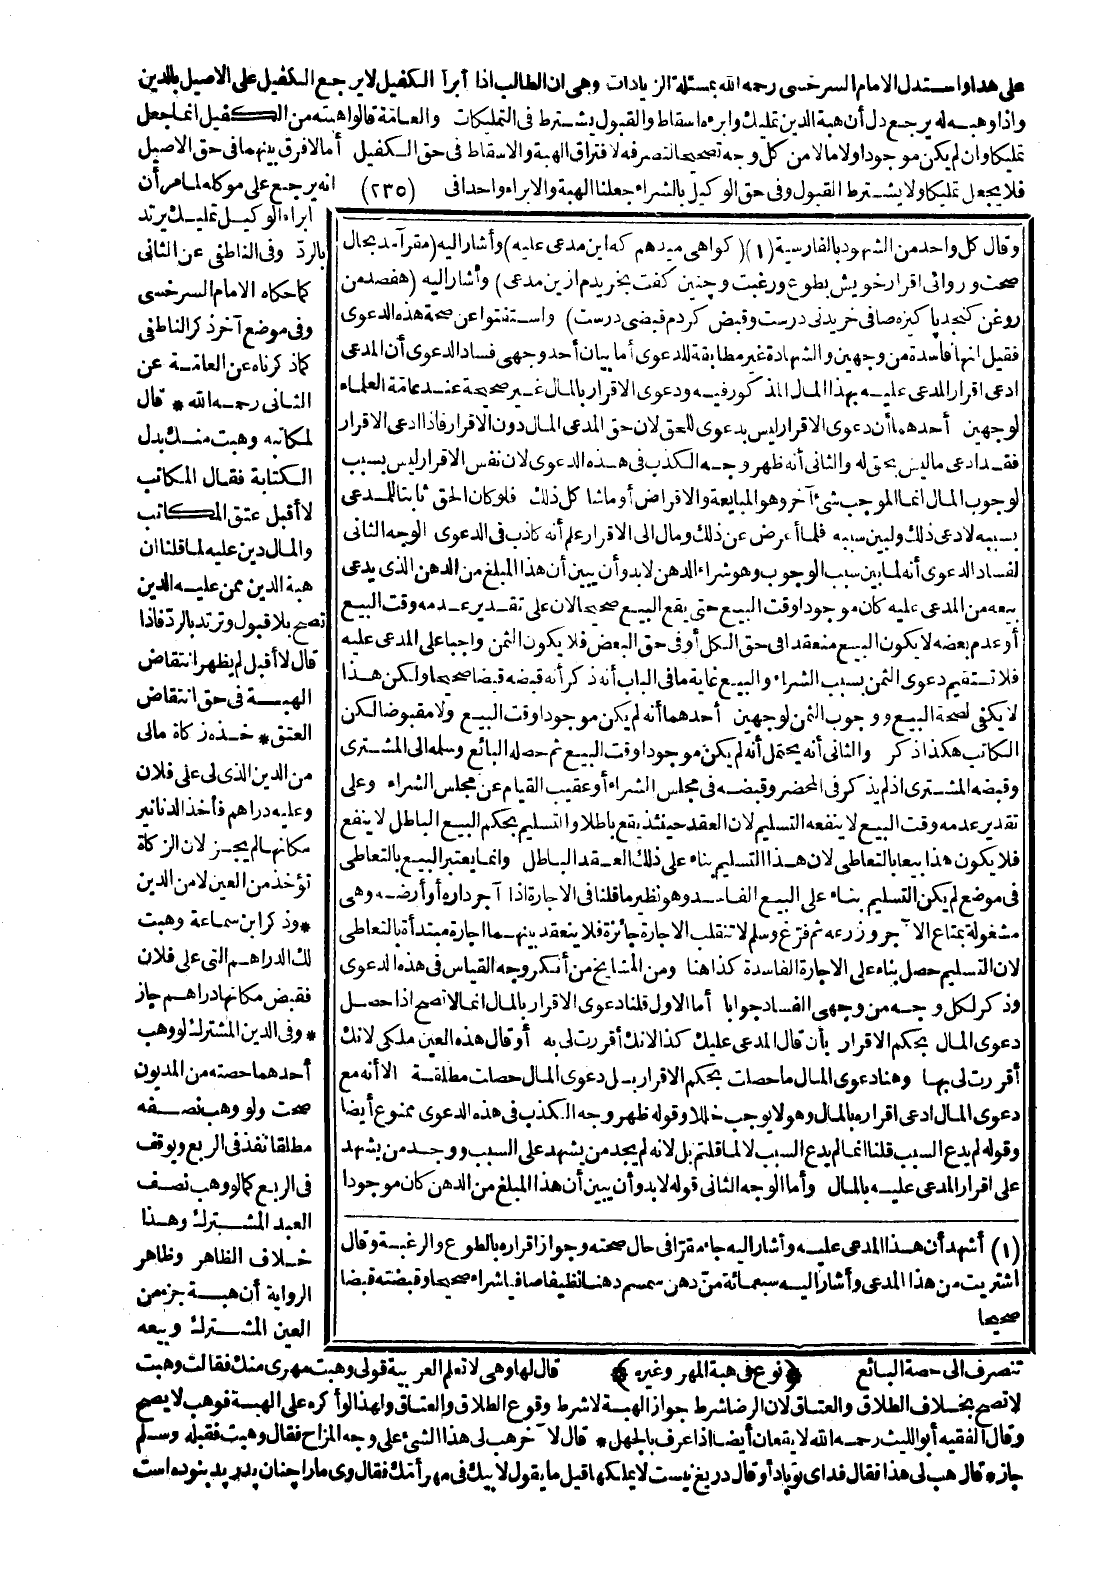 على هذا واستدل الامام السرخسى رحمه الله بمسئلة الزيادات وهى ان الطالب اذا أبرأ الكفيل لا يرجع الكفيل على الاصيل بالدين
واذا وهبه له يرجع دل أن هبة الدين تمليك وابراءه اسقاط والقبول يشترط فى التمليكات والعامة قالوا هبته من الكفيل انما جعل
تمليكا وان لم يكن موجودا ولا مالا من كل وجه تصحيحا لتصرفه لافتراق الهبة والاسقاط فى حق الكفيل أما لا فرق بينهما فى حق الاصيل
فلا يجعل تمليكا ولا يشترط القبول وفى حق الوكيل بالشراء جعلنا الهبة والابراء واحدا فى (٢٣٥) انه يرجع على موكله لما مر أن
ابراء الوكيل تمليك يرتد
بالرد وفى الناطفى عن الثانى
كما حكاه الامام السرخسى
وفى موضع آخر ذكر الناطفى
كما ذكرناه عن العامة عن
الثانى رحمه الله * قال
لمكاتبه وهبت منك بدل
الكتابة فقال المكاتب
لا أقبل عتق المكاتب
والمال دين عليه لما قلنا ان
هبة الدين ممن عليه الدين
تصح بلا قبول وترتد بالرد فاذا
قال لا أقبل لم يظهر انتقاض
الهبة فى حق انتقاض
العتق * خذ زكاة مالى
من الدين الذى لى على فلان
وعليه دراهم فأخذ الدنانير
مكانها لم يجز لان الزكاة
تؤخذ من العين لا من الدين
* وذكر ابن سماعة وهبت
لك الدراهم التى على فلان
فقبض مكانها دراهم جاز
* وفى الدين المشترك لو وهب
أحدهما حصته من المديون
صحت ولو وهب نصفه
مطلقا نفذ فى الربع ويوقف
فى الربع كما لو وهب نصف
العبد المشترك وهذا
خلاف الظاهر وظاهر
الرواية أن هبة جزء من
العين المشترك وبيعه
وقال كل واحد من الشهود بالفارسية (١) (كواهى ميدهم كه اين مدعى عليه) وأشار اليه (مقر آمد بحال
صحت وروائى اقرار خويش بطوع ورغبت وچنين كفت بخريدم ازين مدعى) وأشار اليه (هفصد من
روغن كنجد پاكيزه صافى خريدنى درست وقبض كردم قبضى درست) واستفتوا عن صحة هذه الدعوى
فقيل انها فاسدة من وجهين والشهادة غير مطابقة للدعوى أما بيان أحد وجهى فساد الدعوى أن المدعى
ادعى اقرار المدعى عليه بهذا المال المذكور فيه ودعوى الاقرار بالمال غير صحيحة عند عامة العلماء
لوجهين أحدهما أن دعوى الاقرار ليس بدعوى للحق لان حق المدعى المال دون الاقرار فاذا ادعى الاقرار
فقد ادعى ما ليس بحق له والثانى أنه ظهر وجه الكذب فى هذه الدعوى لان نفس الاقرار ليس بسبب
لوجوب المال انما الموجب شئ آخر وهو المبايعة والاقراض أو ما شاكل ذلك فلو كان الحق ثابتا للمدعى
بسببه لادعى ذلك ولبين سببه فلما أعرض عن ذلك ومال الى الاقرار علم أنه كاذب فى الدعوى الوجه الثانى
لفساد الدعوى أنه لما بين سبب الوجوب وهو شراء الدهن لابد وأن يبين أن هذا المبلغ من الدهن الذى يدعى
بيعه من المدعى عليه كان موجودا وقت البيع حتى يقع البيع صحيحا لان على تقدير عدمه وقت البيع
أو عدم بعضه لا يكون البيع منعقدا فى حق الكل أو فى حق البعض فلا يكون الثمن واجبا على المدعى عليه
فلا تستقيم دعوى الثمن بسبب الشراء والبيع غاية ما فى الباب أنه ذكر أنه قبضه قبضا صحيحا ولكن هذا
لا يكفى لصحة البيع ووجوب الثمن لوجهين أحدهما أنه لم يكن موجودا وقت البيع ولا مقبوضا لكن
الكاتب هكذا ذكر والثانى أنه يحتمل أنه لم يكن موجودا وقت البيع ثم حصله البائع وسلمه الى المشترى
وقبضه المشترى اذ لم يذكر فى المحضر وقبضه فى مجلس الشراء أو عقيب القيام عن مجلس الشراء وعلى
تقدير عدمه وقت البيع لا ينفعه التسليم لان العقد حينئذ يقع باطلا والتسليم بحكم البيع الباطل لا ينفع
فلا يكون هذا بيعا بالتعاطى لان هذا التسليم بناء على ذلك العقد الباطل وانما يعتبر البيع بالتعاطى
فى موضع لم يكن التسليم بناء على البيع الفاسد وهو نظير ما قلنا فى الاجارة اذا آجر داره أو أرضه وهى
مشغولة بمتاع الآجر وزرعه ثم فرغ وسلم لا تنقلب الاجارة جائزة فلا ينعقد بينهما اجارة مبتدأة بالتعاطى
لان التسليم حصل بناء على الاجارة الفاسدة كذا هنا ومن المشايخ من أنكر وجه القياس فى هذه الدعوى
وذكر لكل وجه من وجهى الفساد جوابا أما الاول قلنا دعوى الاقرار بالمال انما لا تصح اذا حصل
دعوى المال بحكم الاقرار بأن قال المدعى عليك كذا لانك أقررت لى به أو قال هذه العين ملكى لانك
أقررت لى بها وهنا دعوى المال ما حصلت بحكم الاقرار بل دعوى المال حصلت مطلقة الا أنه مع
دعوى المال ادعى اقراره بالمال وهو لا يوجب خللا وقوله ظهر وجه الكذب فى هذه الدعوى ممنوع أيضا
وقوله لم يدع السبب قلنا انما لم يدع السبب لا لما قلتم بل لانه لم يجد من يشهد على السبب ووجد من يشهد
على اقرار المدعى عليه بالمال وأما الوجه الثانى قوله لابد وأن يبين أن هذا المبلغ من الدهن كان موجودا
(١) أشهد أن هذا المدعى عليه وأشار اليه جاء مقرا فى حال صحته وجواز اقراره بالطوع والرغبة وقال
اشتريت من هذا المدعى وأشار اليه سبعمائة من دهن سمسم دهنا نظيفا صافيا شراء صحيحا وقبضته قبضا
صحيحا
تنصرف الى حصة البائع ﴿نوع فى هبة المهر وغيره﴾ قال لها وهى لا تعلم العربية قولى وهبت مهرى منك فقالت وهبت
لا تصح بخلاف الطلاق والعتاق لان الرضا شرط جواز الهبة لا شرط وقوع الطلاق والعتاق ولهذا لو أكره على الهبة فوهب لا يصح
وقال الفقيه أبو الليث رحمه الله لا يقعان أيضا اذا عرف بالجهل * قال لآخر هب لى هذا الشئ على وجه المزاح فقال وهبت فقبله وسلم
جاز * قال هب لى هذا فقال فداى تو باد أو قال دريغ نيست لا يملكها قيل ما يقول لا بيك فى مهر أمك فقال وى مارا چنان پدر پديد نبوده است